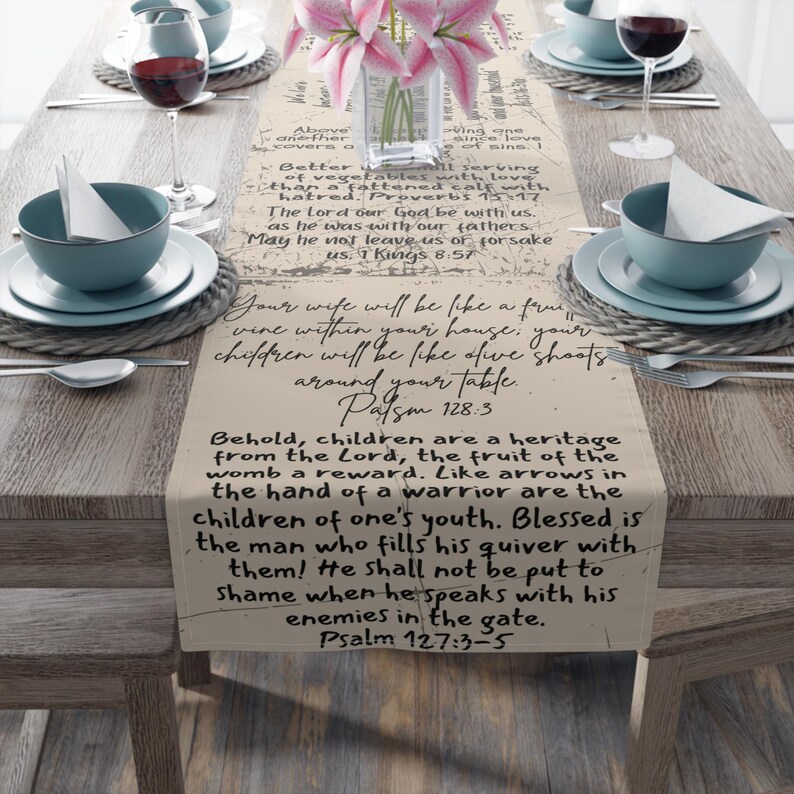 Above all keep loving one
another since love
covers a of sins. 1
Better a small serving
of vegetables with love
than a fattened calf with
hatred. Proverbs 15:17
The Lord our God be with us,
as he was with our fathers.
May he not leave us or forsake
us. 1 Kings 8:57
Your wife will be like a
vine within your house; your
children will be like olive shoots
around your table.
Palsm 128:3
Behold, children are a heritage
from the Lord, the fruit of the
womb a reward. Like arrows in
the hand of a warrior are the
children of one's youth. Blessed is
the man who fills his quiver with
them! He shall not be put to
shame when he speaks with his
enemies in the gate.
Psalm 127:3-5